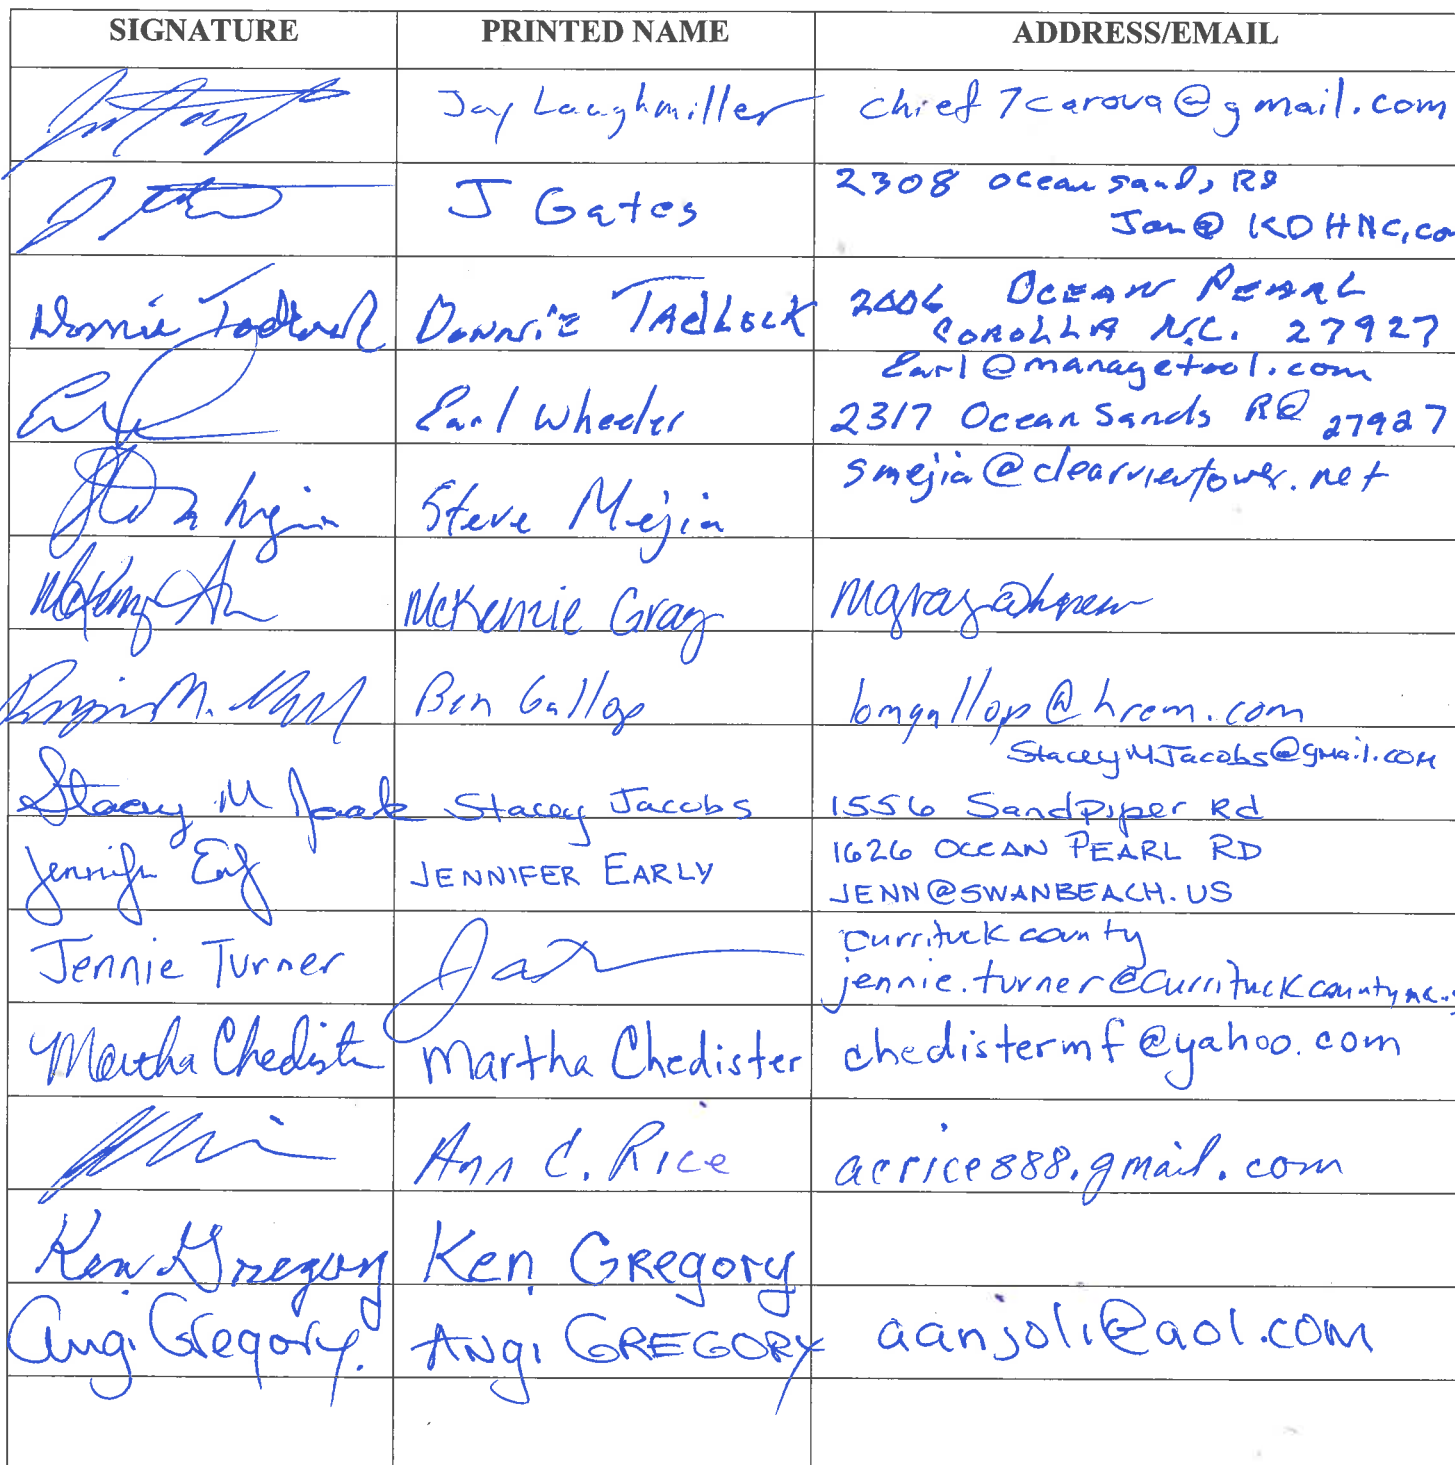 SIGNATURE PRINTED NAME ADDRESS/EMAIL
Jay Laughmiller chief7carova@gmail.com
J Gates 2308 Ocean Sands Rd
Jon@KDHNC.co
Donnie Tadlock Donnie TAdLock 2006 OCEAN PEARL
COROLLA N.C. 27927
Earl Wheeler Earl@managetool.com
2317 Ocean Sands RD 27927
Steve Mejia smejia@clearviewtower.net
McKenzie Gray mgray@hrem
Ben Gallop bmgallop@hrem.com
StaceyMJacobs@gmail.com
Stacey M Jacobs Stacey Jacobs 1556 Sandpiper Rd
Jennifer Early JENNIFER EARLY 1626 OCEAN PEARL RD
JENN@SWANBEACH.US
Jennie Turner Currituck county
jennie.turner@Currituckcountync.
Martha Chedister Martha Chedister chedistermf@yahoo.com
Ann C. Rice acrice888.gmail.com
Ken Gregory Ken GREgory
Angi Gregory. ANgi GREGORY aanjoli@aol.com